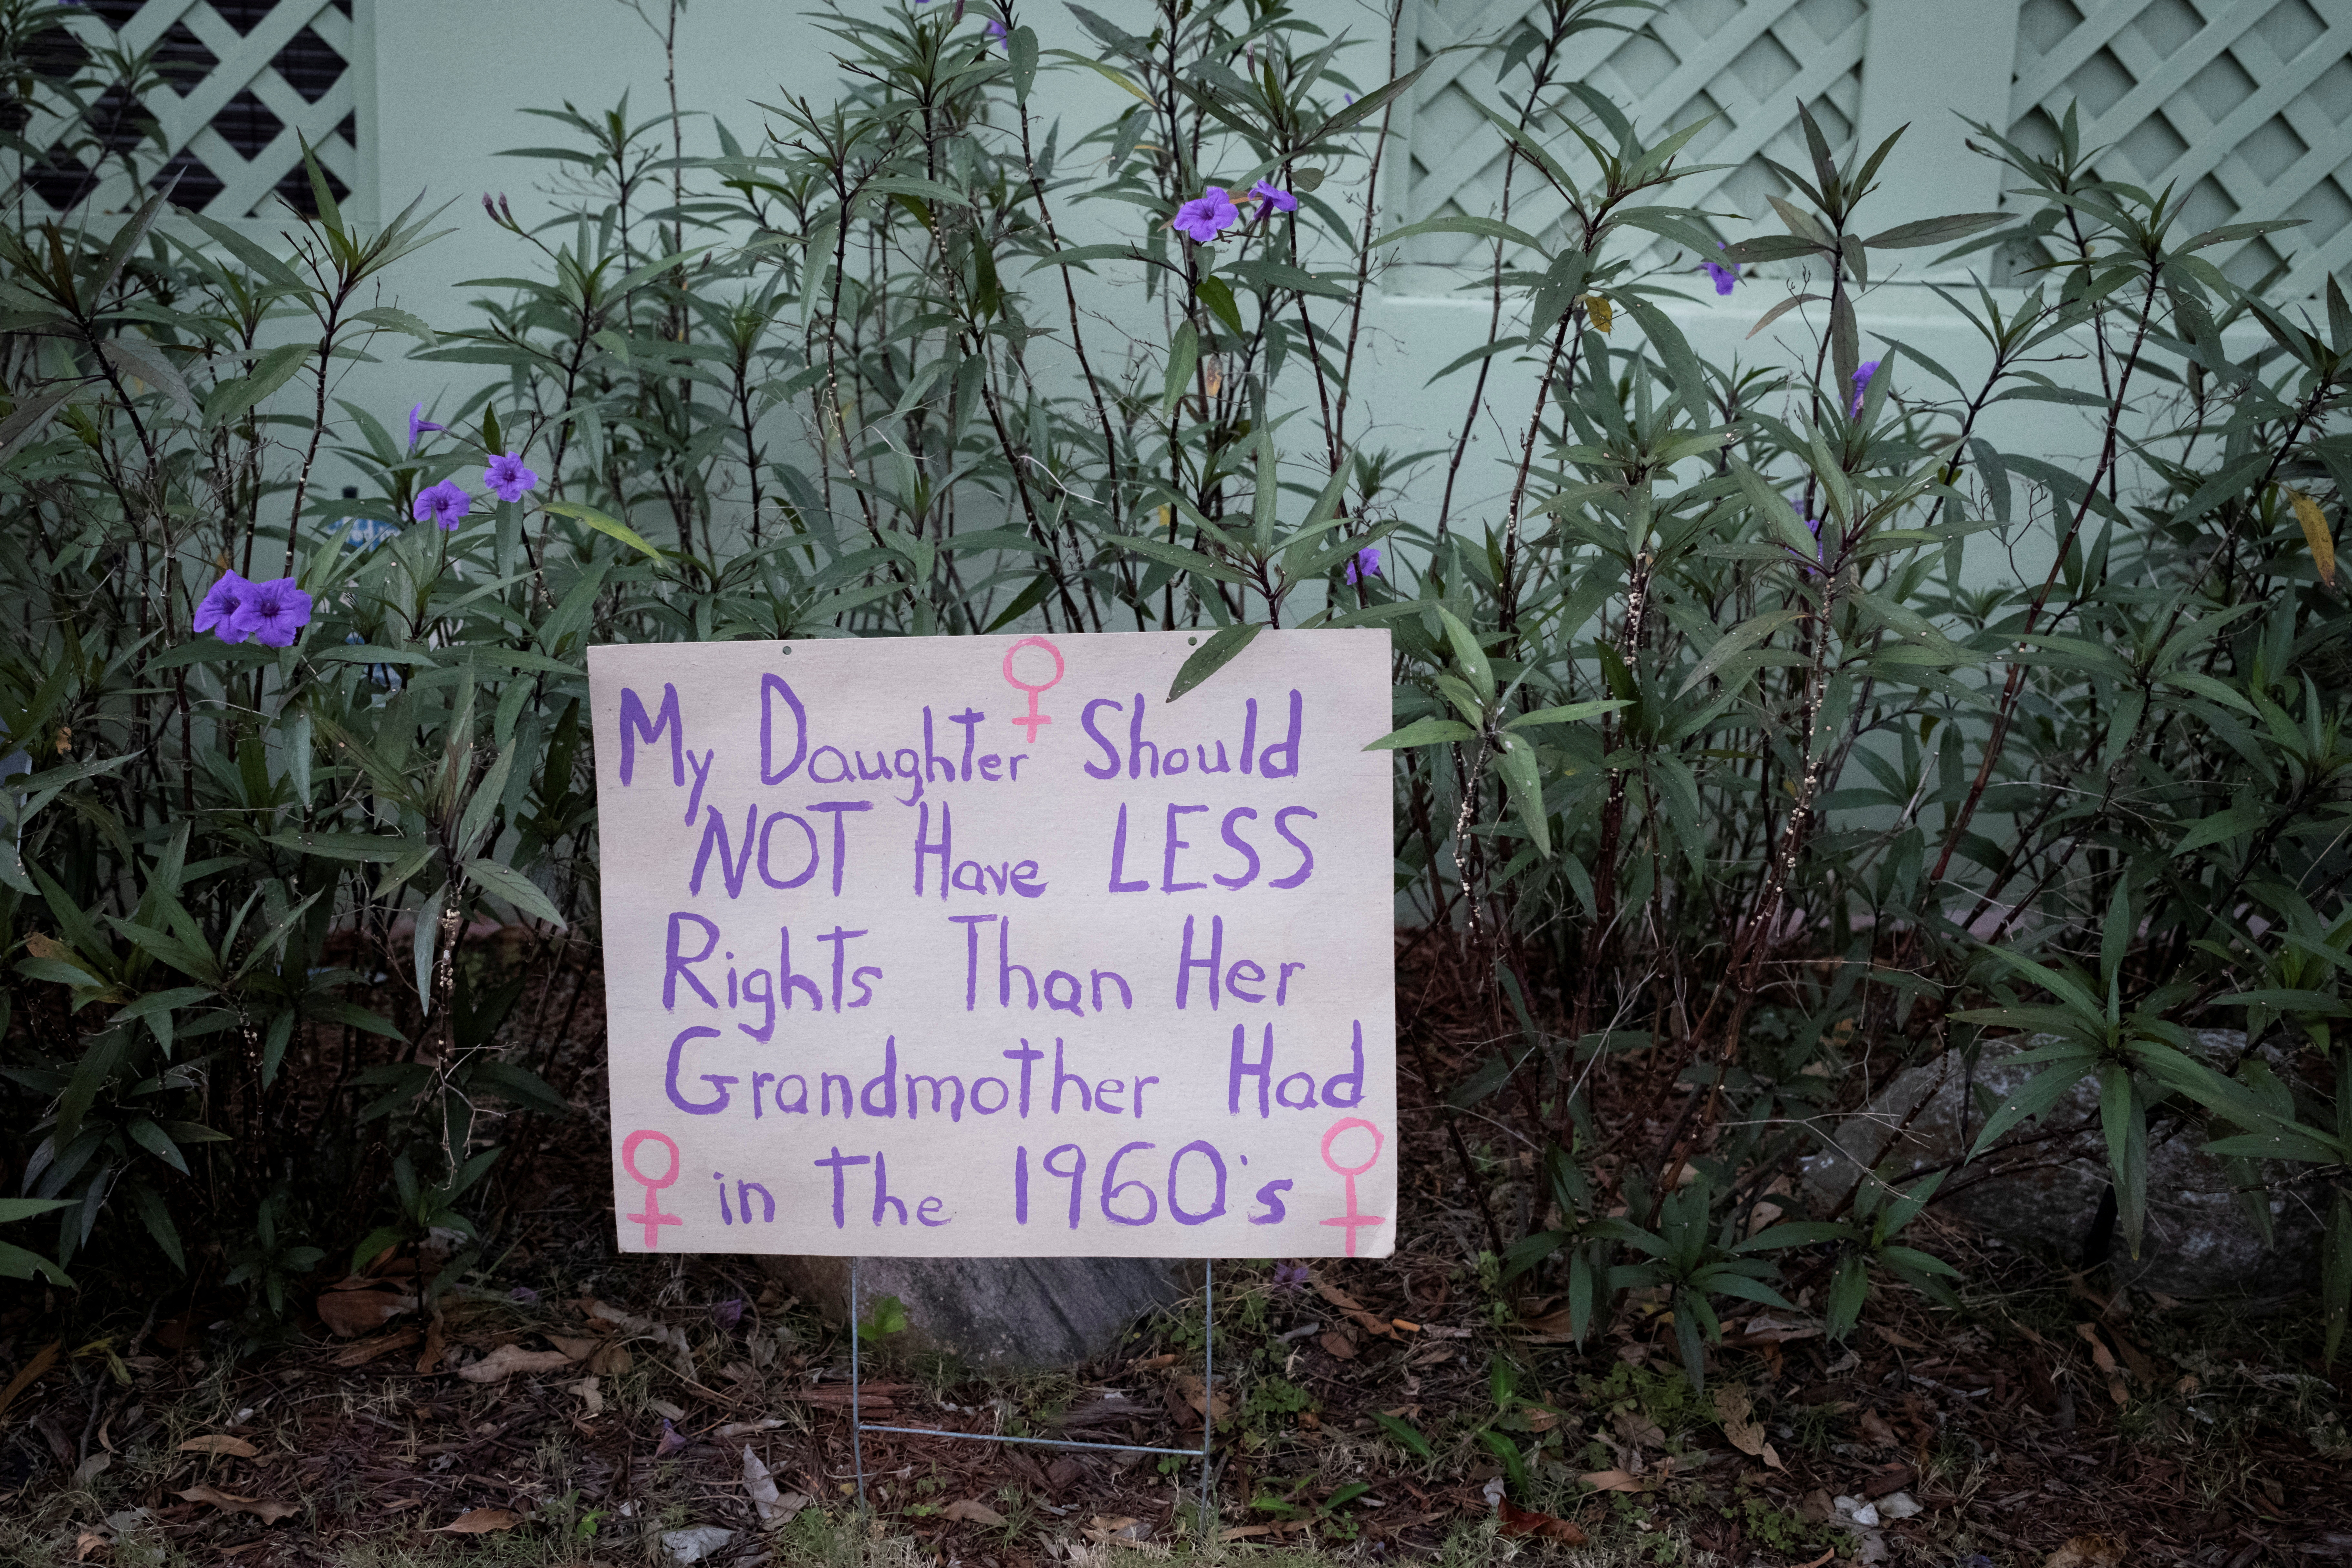 My Daughter Should
NOT Have LESS
Rights Than Her
Grandmother Had
in The 1960's